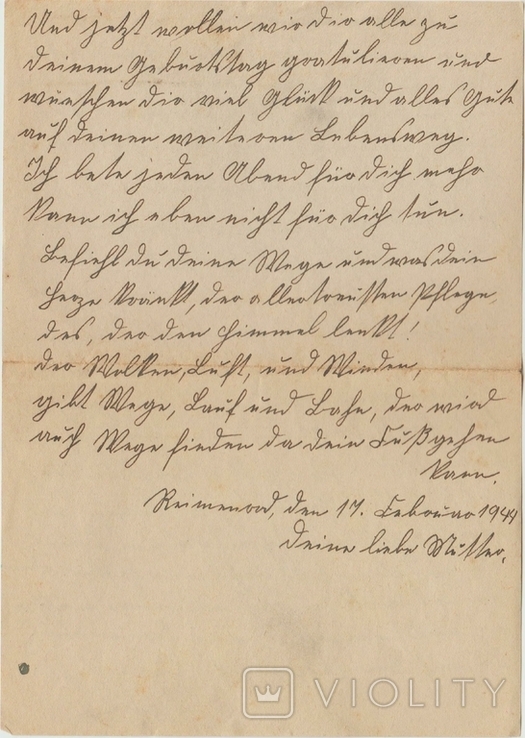 Und jetzt wollen wir dir alle zu
deinem Geburtstag gratulieren und
wünschen dir viel Glück und alles Gute
auf deinen weiteren Lebensweg.
Ich bete jeden Abend für dich mehr
kann ich eben nicht für dich tun.
Befiehl du deine Wege und was dein
Herze kränkt, der allertreusten Pflege
des, der den Himmel lenkt!
der Wolken, Luft, und Winden,
gibt Wege, Lauf und Bahn, der wird
auch Wege finden da dein Fuß gehen
kann.
den 17. Februar 1944
Deine liebe Mutter.
VIOLITY